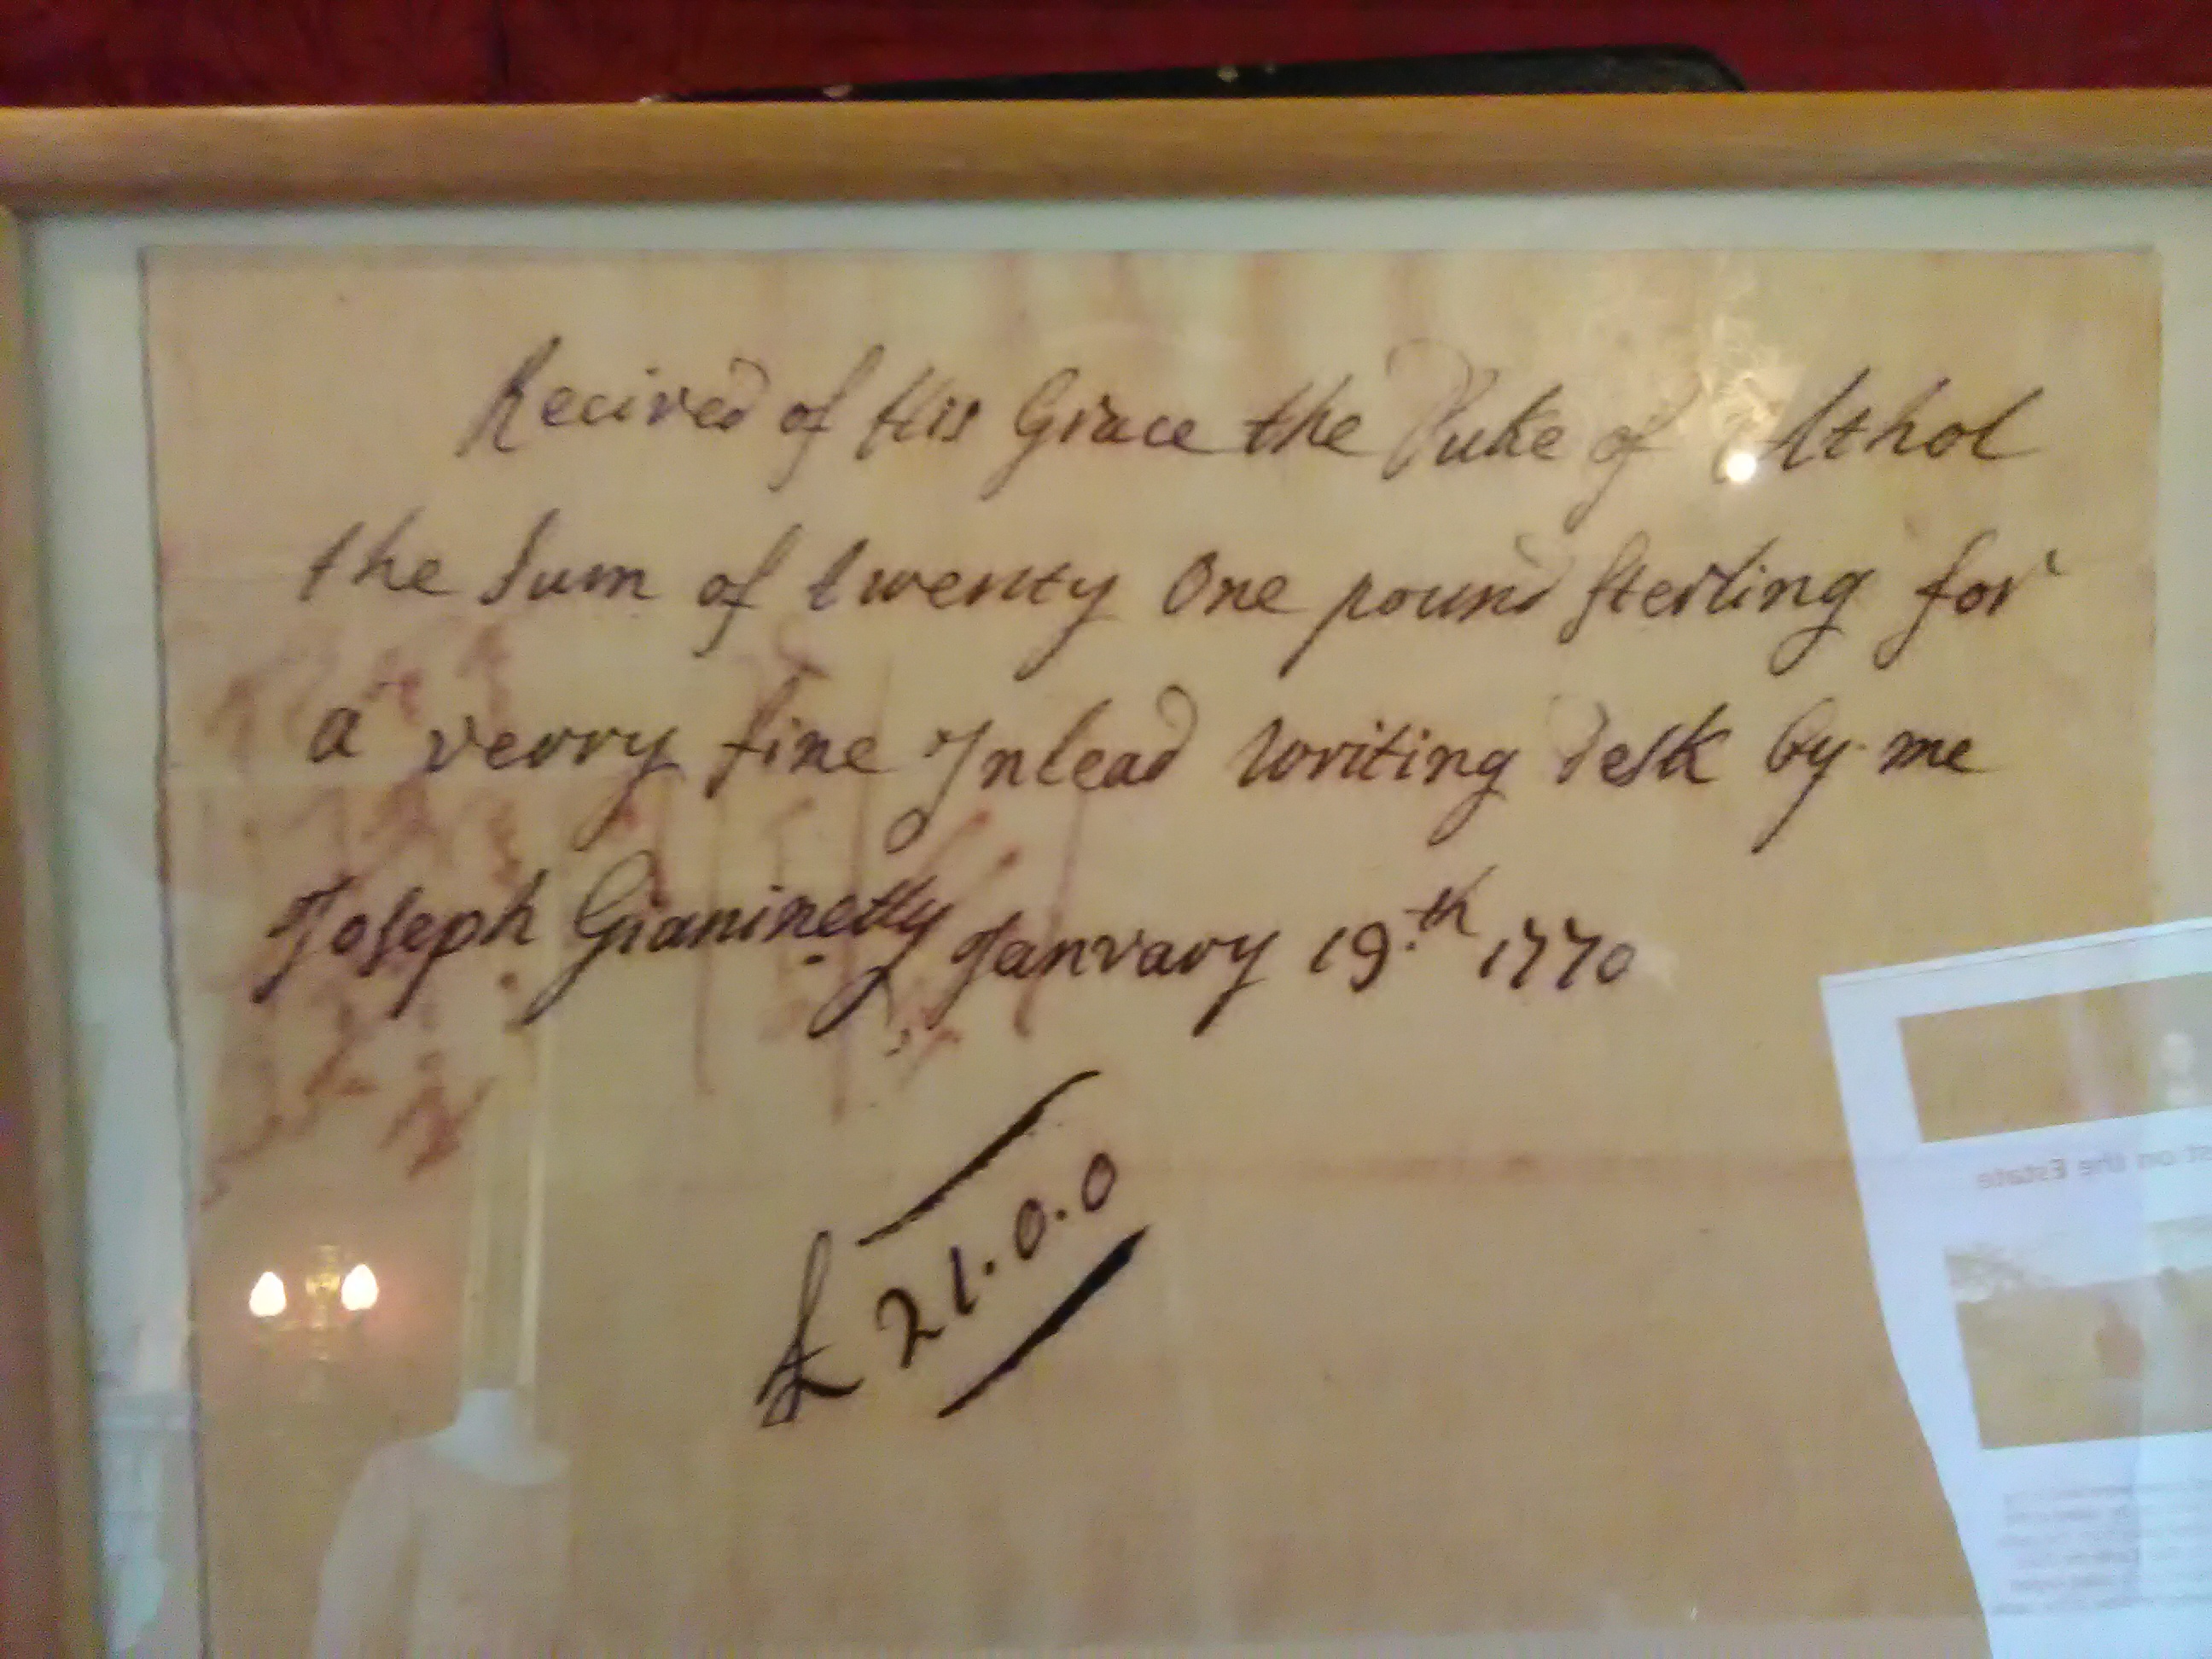 Recived of His Grace the Duke of Athol
the Sum of twenty One pound Sterling for
a verry fine Inlead Writing Desk by me
Joseph Gianinetty January 19.th 1770
£ 21.0.0
st on the Estate